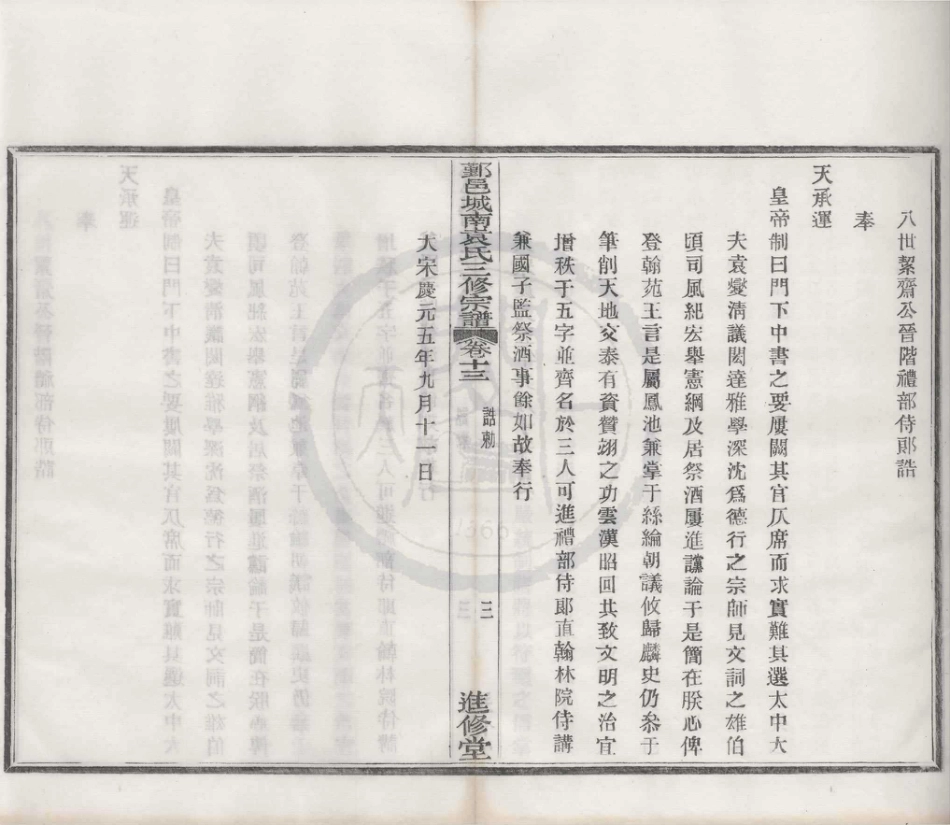 八世絜齋公晉階禮部侍郞誥
奉
天承運
皇帝制曰門下中書之要屢闕其官仄席而求實難其選太中大
夫袁燮淸議閎達雅學深沈爲德行之宗師見文詞之雄伯
頃司風紀宏舉憲綱及居祭酒屢進讜論于是簡在朕心俾
登翰苑王言是屬鳳池兼掌于絲綸朝議攸歸麟史仍叅于
筆削天地交泰有資贊翊之功雲漢昭回共致文明之治宜
增秩于五字並齊名於三人可進禮部侍郞直翰林院侍講
兼國子監祭酒事餘如故奉行
大宋慶元五年九月十一日
鄞邑城南袁氏三修宗譜 卷十三
誥勅
三
進修堂